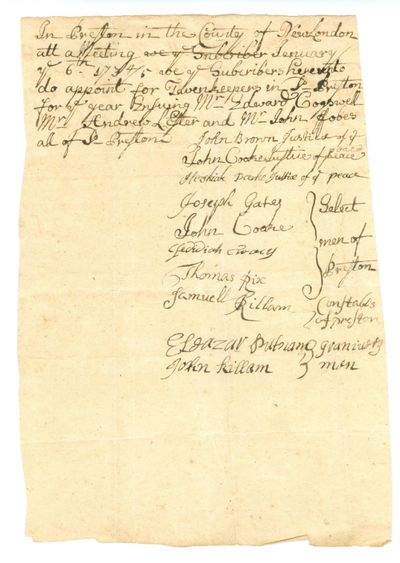 In Preston in the County of New London
att a Meeting we ye Subbiber January
ye 6th 1734/5 we ye Subcribers hereto
do appoint for Tavenkeepers in sd Preston
for ye year Ensuing Mr Edward Cogswell
Mr Andrew Lester and Mr John Fobes
all of sd Preston
John Brown Justice of ye peace
John Cooke Justice of peace
Hezekiah Justice of ye peace
Joseph Gates } Select
John Cooke men of
Jedidiah Preston
Thomas Pix
Samuell Killam } Constabls of Preston
Eleazar Putnam } graniury
John Killam men